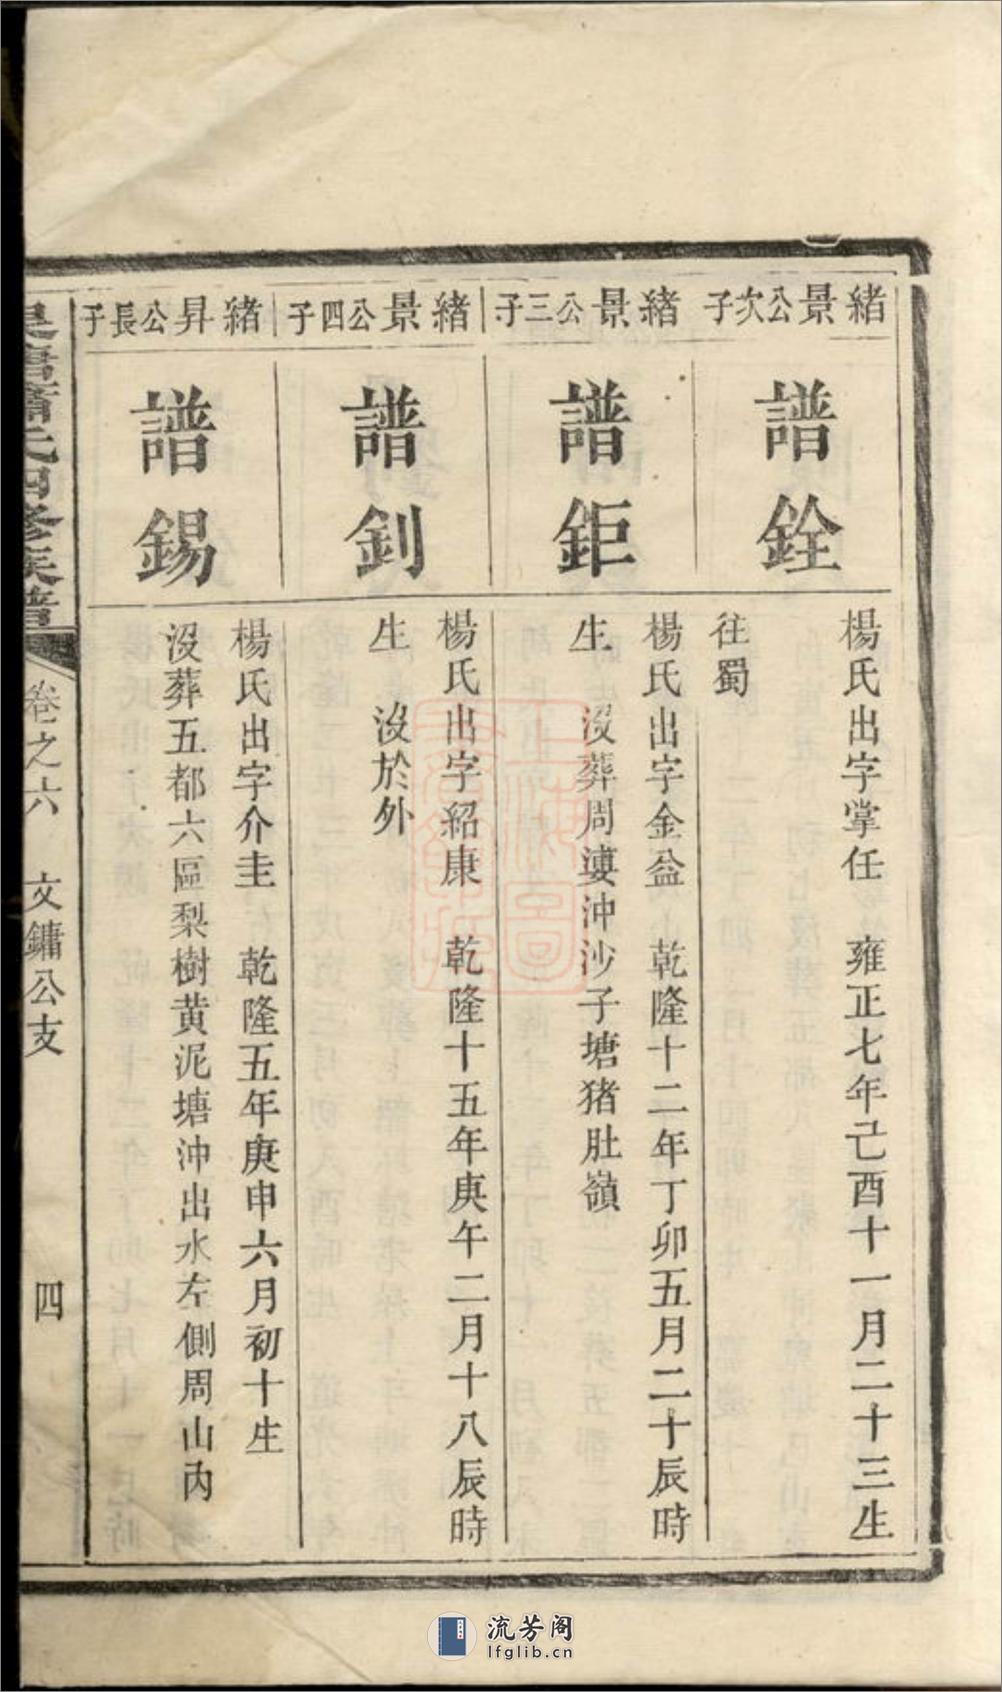 緒景公次子
譜銓
楊氏出字掌任　雍正七年己酉十一月二十三生
往蜀
緒景公三子
譜鉅
楊氏出字金益　乾隆十二年丁卯五月二十辰時
生　沒葬周婁沖沙子塘猪肚嶺
緒景公四子
譜釗
楊氏出字紹康　乾隆十五年庚午二月十八辰時
生　沒於外
緒昇公長子
譜錫
楊氏出字介圭　乾隆五年庚申六月初十生
沒葬五都六區梨樹黄泥塘沖出水左側周山內
氏四修族譜　卷之六　文鏞公支　四
流芳阁
lfglib.cn